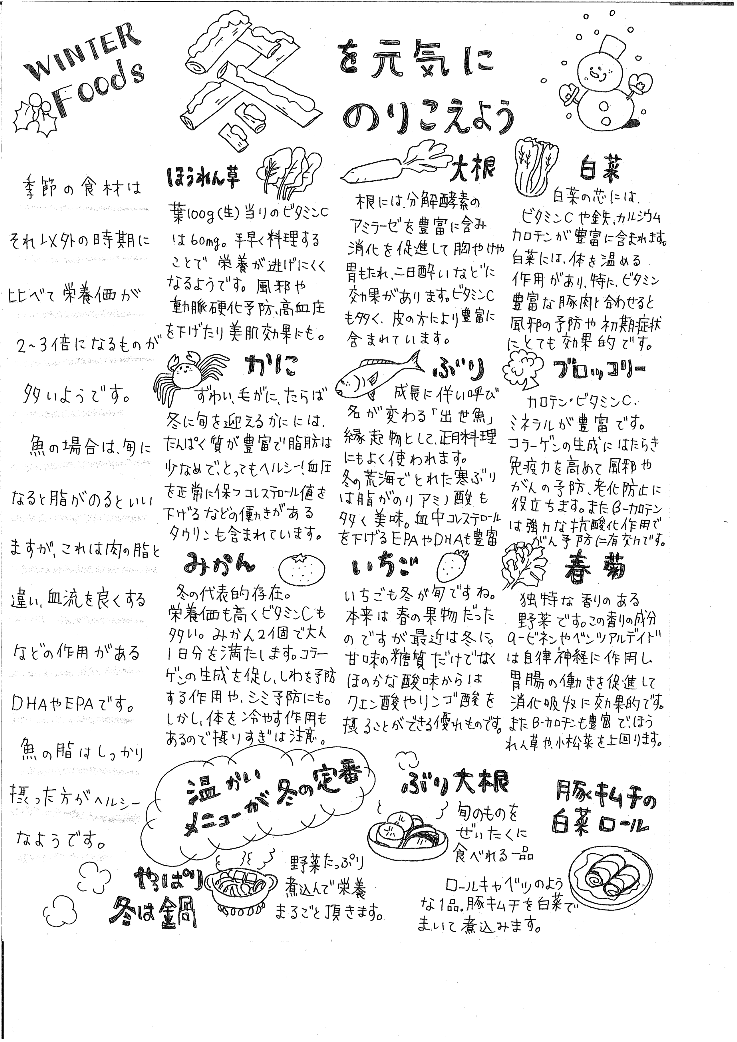 WINTER
Foods
冬を元気に
のりこえよう
季節の食材は
それ以外の時期に
比べて栄養価が
2〜3倍になるものが
多いようです。
魚の場合は、旬に
なると脂がのるといい
ますが、これは肉の脂と
違い、血流を良くする
などの作用がある
DHAやEPAです。
魚の脂はしっかり
摂った方がヘルシー
なようです。
ほうれん草
葉100g(生)当りのビタミンC
は60mg。手早く料理する
ことで栄養が逃げにくく
なるようです。風邪や
動脈硬化予防、高血圧
を下げたり美肌効果にも。
大根
根には、分解酵素の
アミラーゼを豊富に含み
消化を促進して胸やけや
胃もたれ、二日酔いなどに
効果があります。ビタミンC
も多く、皮の方により豊富に
含まれています。
白菜
白菜の芯には、
ビタミンCや鉄、カルシウム
カロテンが豊富に含まれます。
白菜には、体を温める
作用があり、特に、ビタミン
豊富な豚肉と合わせると
風邪の予防や初期症状
にとても効果的です。
かに
ずわい、毛がに、たらば
冬に旬を迎えるかにには、
たんぱく質が豊富で脂肪は
少なめで、とってもヘルシー!血圧
を正常に保つコレステロール値を
下げるなどの働きがある
タウリンも含まれています。
ぶり
成長に伴い呼び
名が変わる「出世魚」
縁起物として、正月料理
にもよく使われます。
冬の荒海でとれた寒ぶり
は脂がのりアミノ酸も
多く美味。血中コレステロール
を下げるEPAやDHAも豊富
ブロッコリー
カロテン・ビタミンC、
ミネラルが豊富です。
コラーゲンの生成にはたらき
免疫力を高めて風邪や
がんの予防、老化防止に
役立ちます。またβ-カロテン
は強力な抗酸化作用で
がん予防に有効です。
みかん
冬の代表的存在。
栄養価も高くビタミンCも
多い。みかん2個で大人
1日分を満たします。コラー
ゲンの生成を促し、しわを予防
する作用や、シミ予防にも。
しかし、体を冷やす作用も
あるので摂りすぎは注意。
いちご
いちごも冬が旬ですね。
本来は春の果物だった
のですが最近は冬に。
甘味の糖質だけでなく
ほのかな酸味からは
クエン酸やリンゴ酸を
摂ることができる優れものです。
春菊
独特な香りのある
野菜です。この香りの成分
α-ピネンやベンツアルデヒド
は自律神経に作用し、
胃腸の働きを促進して
消化吸収に効果的です。
またβ-カロテンも豊富で、ほう
れん草や小松菜を上回ります。
温かい
メニューが冬の定番
やっぱり
冬は鍋
野菜たっぷり
煮込んで栄養
まるごと頂きます。
ぶり大根
旬のものを
ぜいたくに
食べれる一品
豚キムチの
白菜ロール
ロールキャベツのよう
な1品。豚キムチを白菜で
まいて煮込みます。